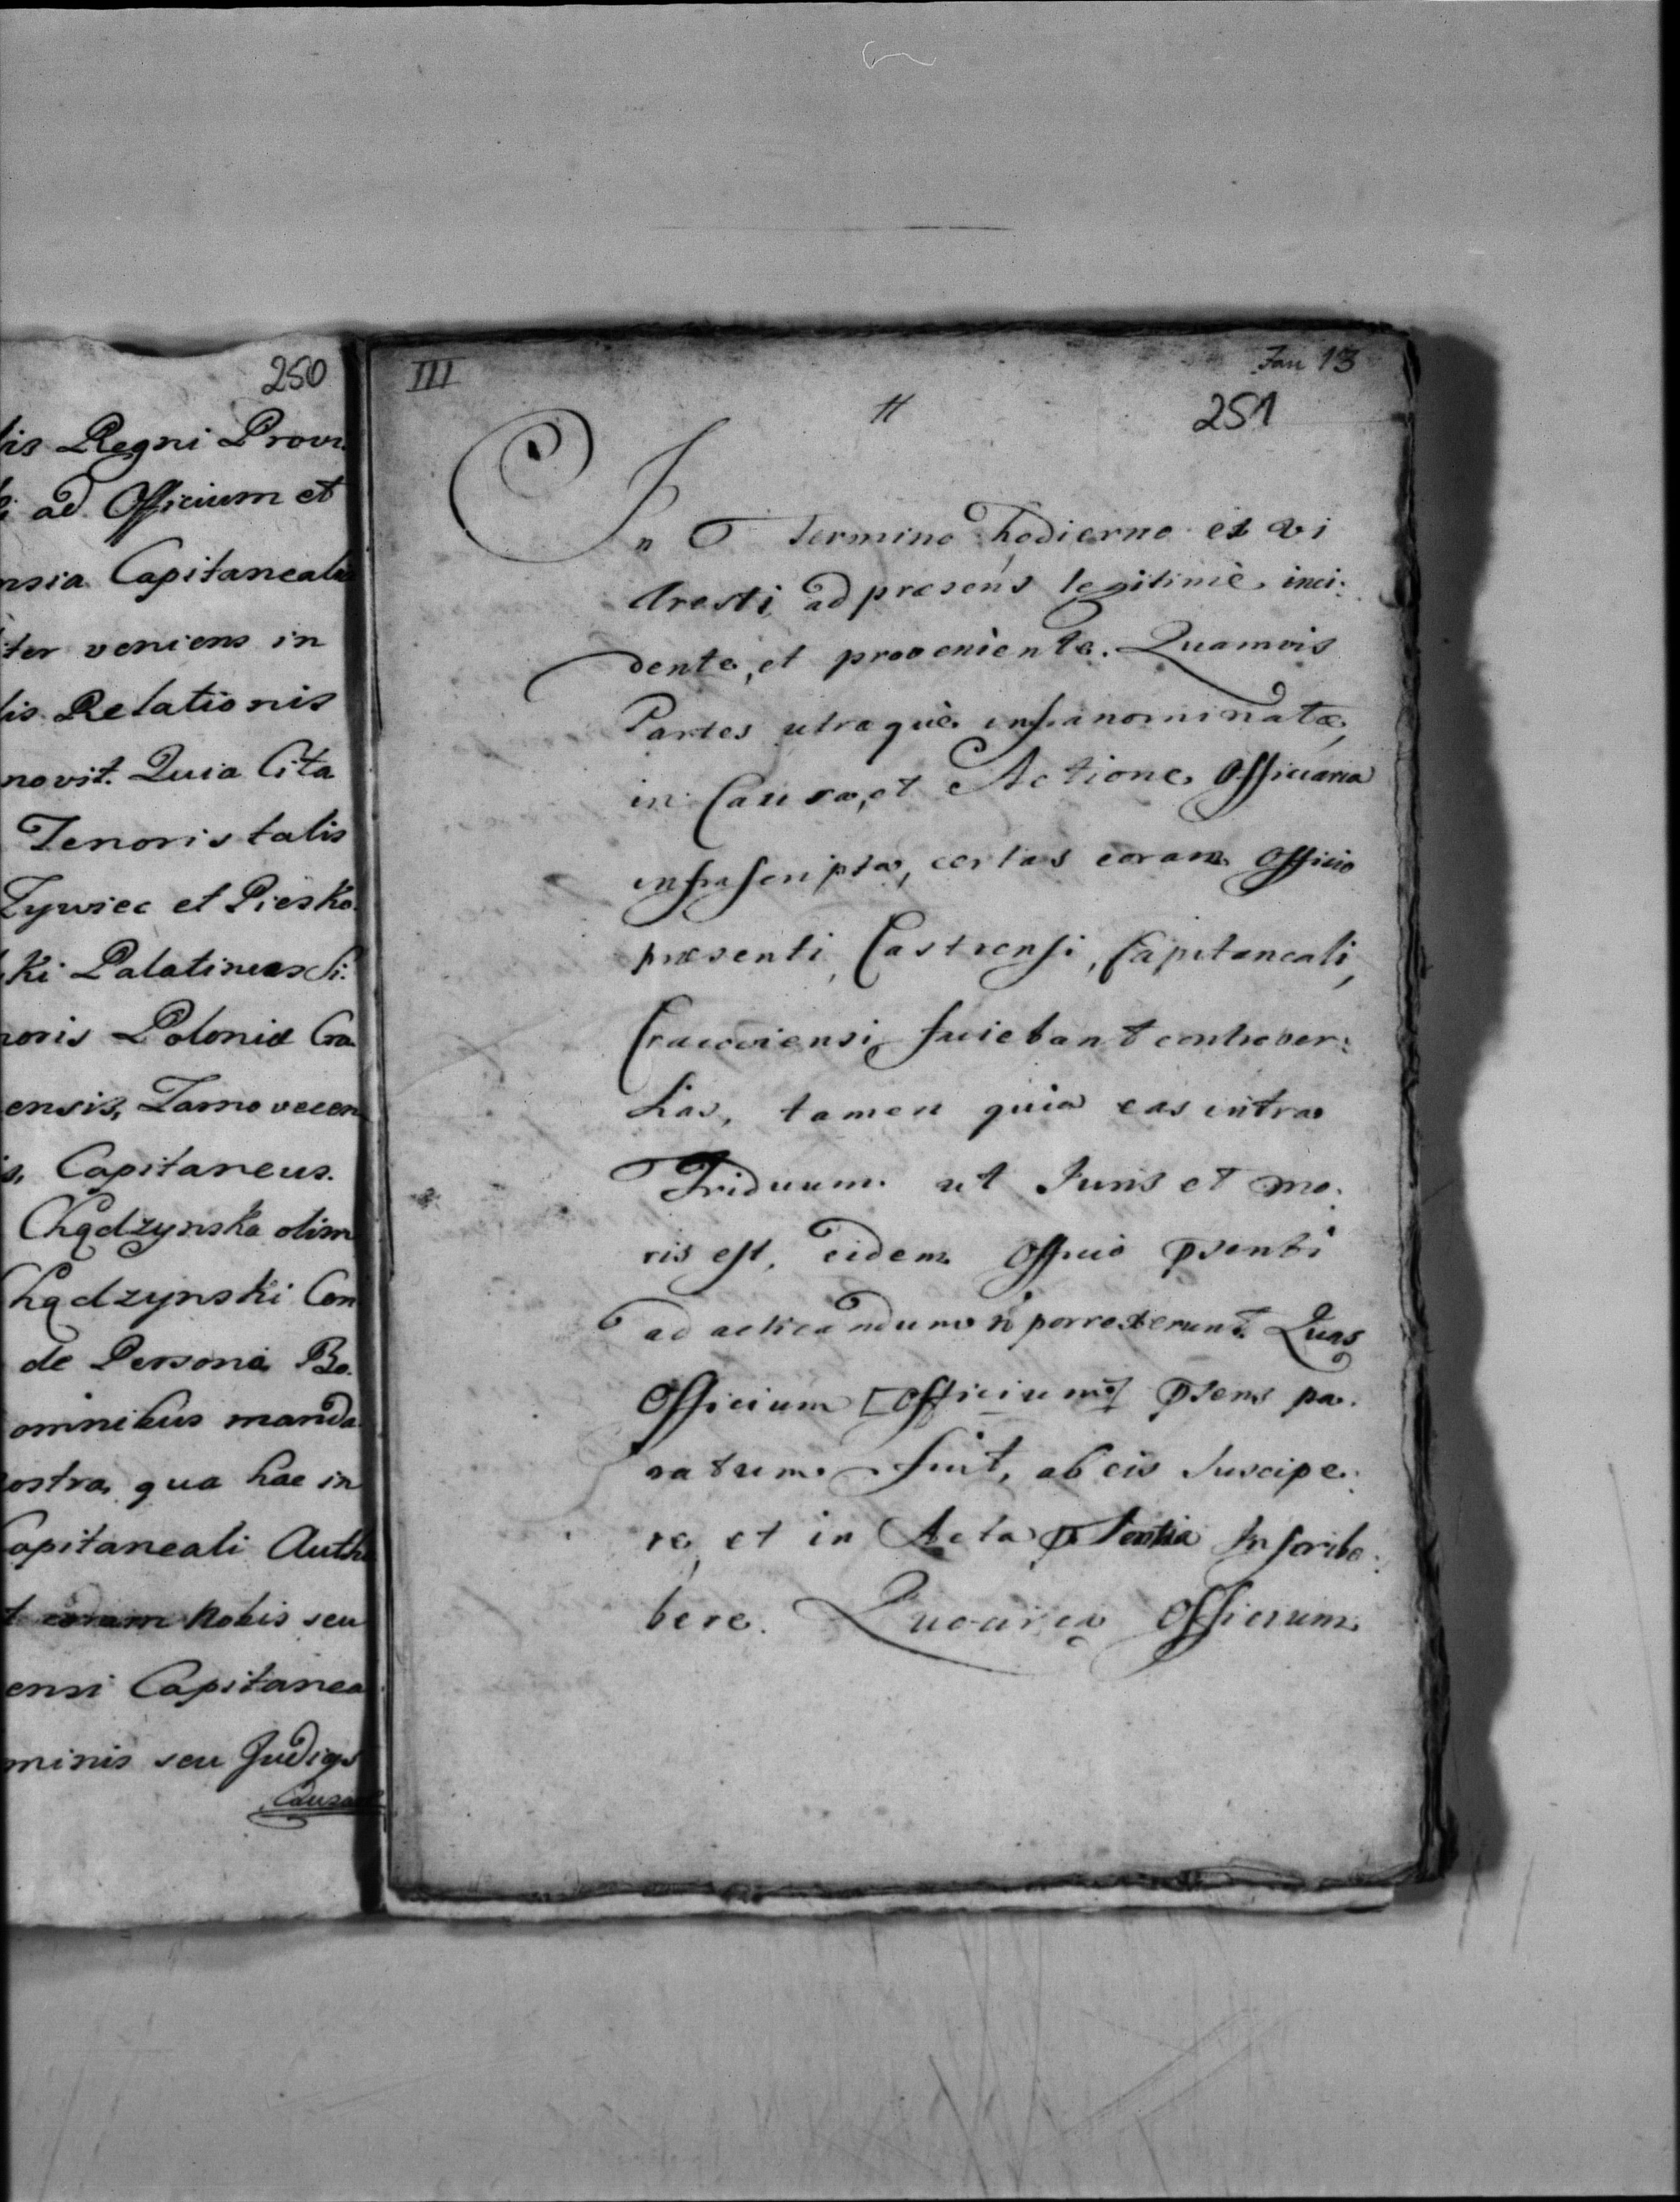 250
lis Regni Provi
ad Officium et
nsia Capitaneale
ter veniens in
lis Relationis
novit. Quia Cita
Tenoris talis
Zywiec et Piesko
ki Palatinus
noris Polonia Cra
ensis, Tarnovecen
s, Capitaneus.
Chądzynska olim
Chądzynski Con
de Persona Bo.
omnibus manda
ostra, qua hac in
Capitaneali Auth
coram Nobis seu
ensi Capitanea
minis seu Judicys
Causa
III
Jan 13
11
251
In Termino hodierno ex vi
Aresti ad præsens legitimè inci:
dente, et proveniente. Quamvis
Partes utraquè infranominatæ,
in Causa, et Actione, Officiaria
infrascripta, certas coram Officio
præsenti, Castrensi, Capitaneali,
Cracoviensi faciebant controver:
sias, tamen quia eas intra
Triduum ut Juris et mo:
ris est, eidem Officio psenti
ad acticandum ñ porrexerunt. Quas
Officium [Officium] psens pa:
ratum fuit, ab eis suscipe:
re, et in Acta pσentia Inscribe:
bere. Quocirca Officium